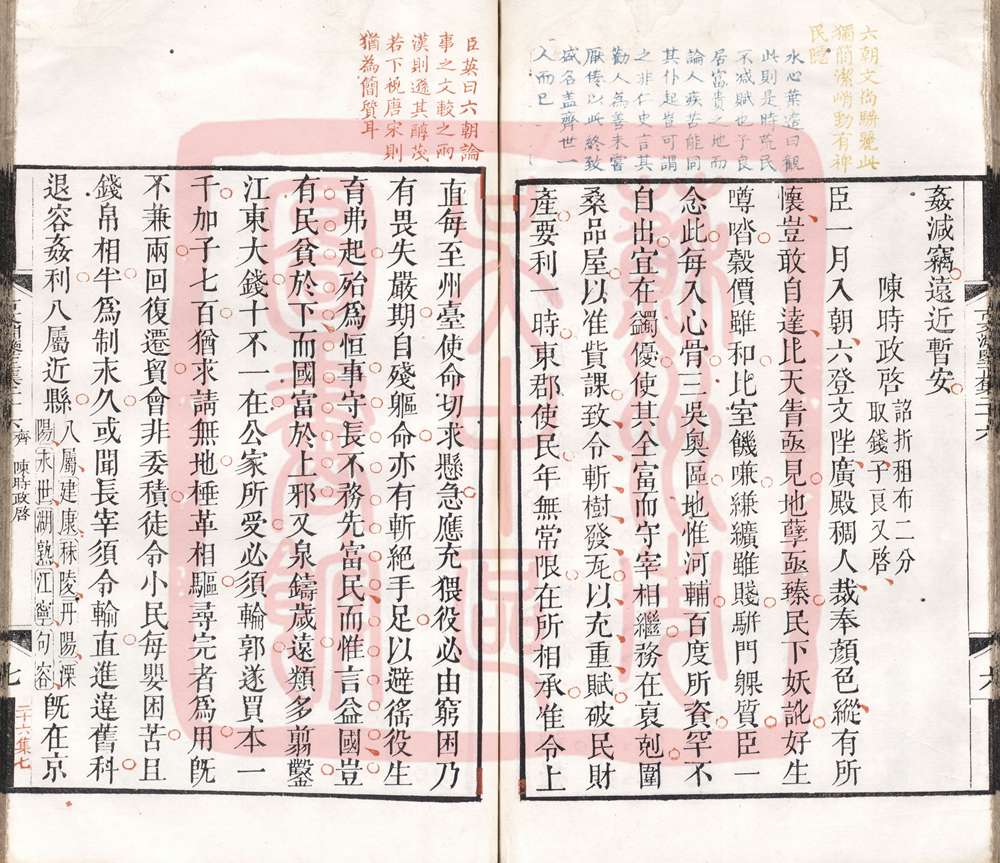 六朝文尚駢麗此
獨簡潔峭勁有裨
民瘼
水心葉適曰觀
此則是時荒民
不減賦也子良
居富貴之地而
論人疾苦能同
其仆起豈可謂
之非仁史言其
勸人為善未嘗
厭倦以此終致
盛名蓋齊世一
人而已
姦減竊遠近暫安
陳時政啓
詔折租布二分
取錢子良又啓
臣一月入朝六登文陛廣殿稠人裁奉顏色縱有所
懷豈敢自達比天眚亟見地孽亟臻民下妖訛好生
噂𠴲穀價雖和比室饑嗛縑纊雖賤駢門躶質臣一
念此每入心骨三吳奧區地惟河輔百度所資罕不
自出宜在蠲優使其全富而守宰相繼務在裒剋圍
桑品屋以准貲課致令斬樹發瓦以充重賦破民財
產要利一時東郡使民年無常限在所相承准令上
臣英曰六朝論
事之文較之兩
漢則遜其醇茂
若下視唐宋則
猶為簡質耳
直每至州臺使命切求懸急應充猥役必由窮困乃
有畏失嚴期自殘軀命亦有斬絕手足以避徭役生
育弗起殆爲恒事守長不務先富民而惟言益國豈
有民貧於下而國富於上邪又泉鑄歲遠類多翦鑿
江東大錢十不一在公家所受必須輪郭遂買本一
千加子七百猶求請無地棰革相驅尋完者爲用旣
不兼兩回復遷貿會非委積徒令小民每嬰困苦且
錢帛相半爲制永久或聞長宰須令輸直進違舊科
退容姦利八屬近縣
八屬建康秣陵丹陽溧
陽永世湖熟江寧句容
旣在京
齊 陳時政啓
七
二十六集七